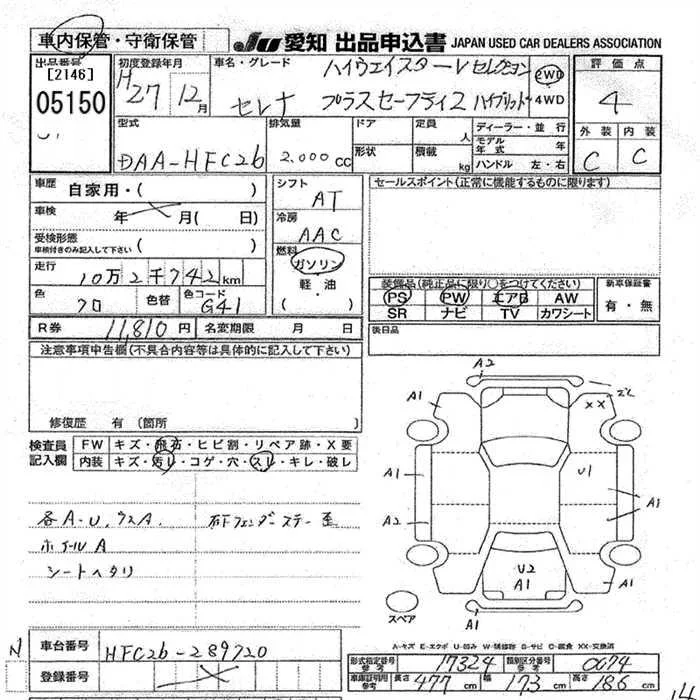 車内保管・守衛保管 JU 愛知 出品申込書 JAPAN USED CAR DEALERS ASSOCIATION
出品番号 [2146] 05150
初度登録年月 H27 12月
車名・グレード セレナ ハイウェイスターVセレクション プラスセーフティⅡ ハイブリット 2WD・4WD
評価点 4
外装 C 内装 C
型式 DAA-HFC26
排気量 2,000cc
ドア 形状
定員 人 積載 kg
ディーラー・並行
モデル年式 年
ハンドル 左・右
車歴 自家用・( )
車検 年 月( 日)
受検形態 車検付きのみ記入して下さい ( )
走行 10万2千742km
色 クロ 色替 色コード G41
R券 11,810円 名変期限 月 日
シフト AT
冷房 AAC
燃料 ガソリン 軽・油
セールスポイント(正常に機能するものに限ります)
装備品(純正品に限り○をつけてください)
PS PW エアB AW
SR ナビ TV カワシート
新車保証書 有・無
後日品
注意事項申告欄(不具合内容等は具体的に記入して下さい)
修復歴 有 〔箇所 〕
検査員記入欄
FW キズ・飛石・ヒビ割・リペア跡・X要
内装 キズ・汚レ・コゲ・穴・スレ・キレ・破レ
各A・U,ウスA. 右Fフェンダーステー歪
ホイールA
シートヘタリ
A2
A1
XX
A1
U1
A1
A2
A1
U2
A1
A1
A1
スペア
A-キズ E-エクボ U-凹み W-補修跡 S-サビ C-腐食 XX-交換済
N
車台番号 HFC26-289720
登録番号
型式指定番号 参考 17324 類別区分番号 参考 0074
車庫証明用 参考 長さ 477cm 幅 173cm 高さ 186cm
14